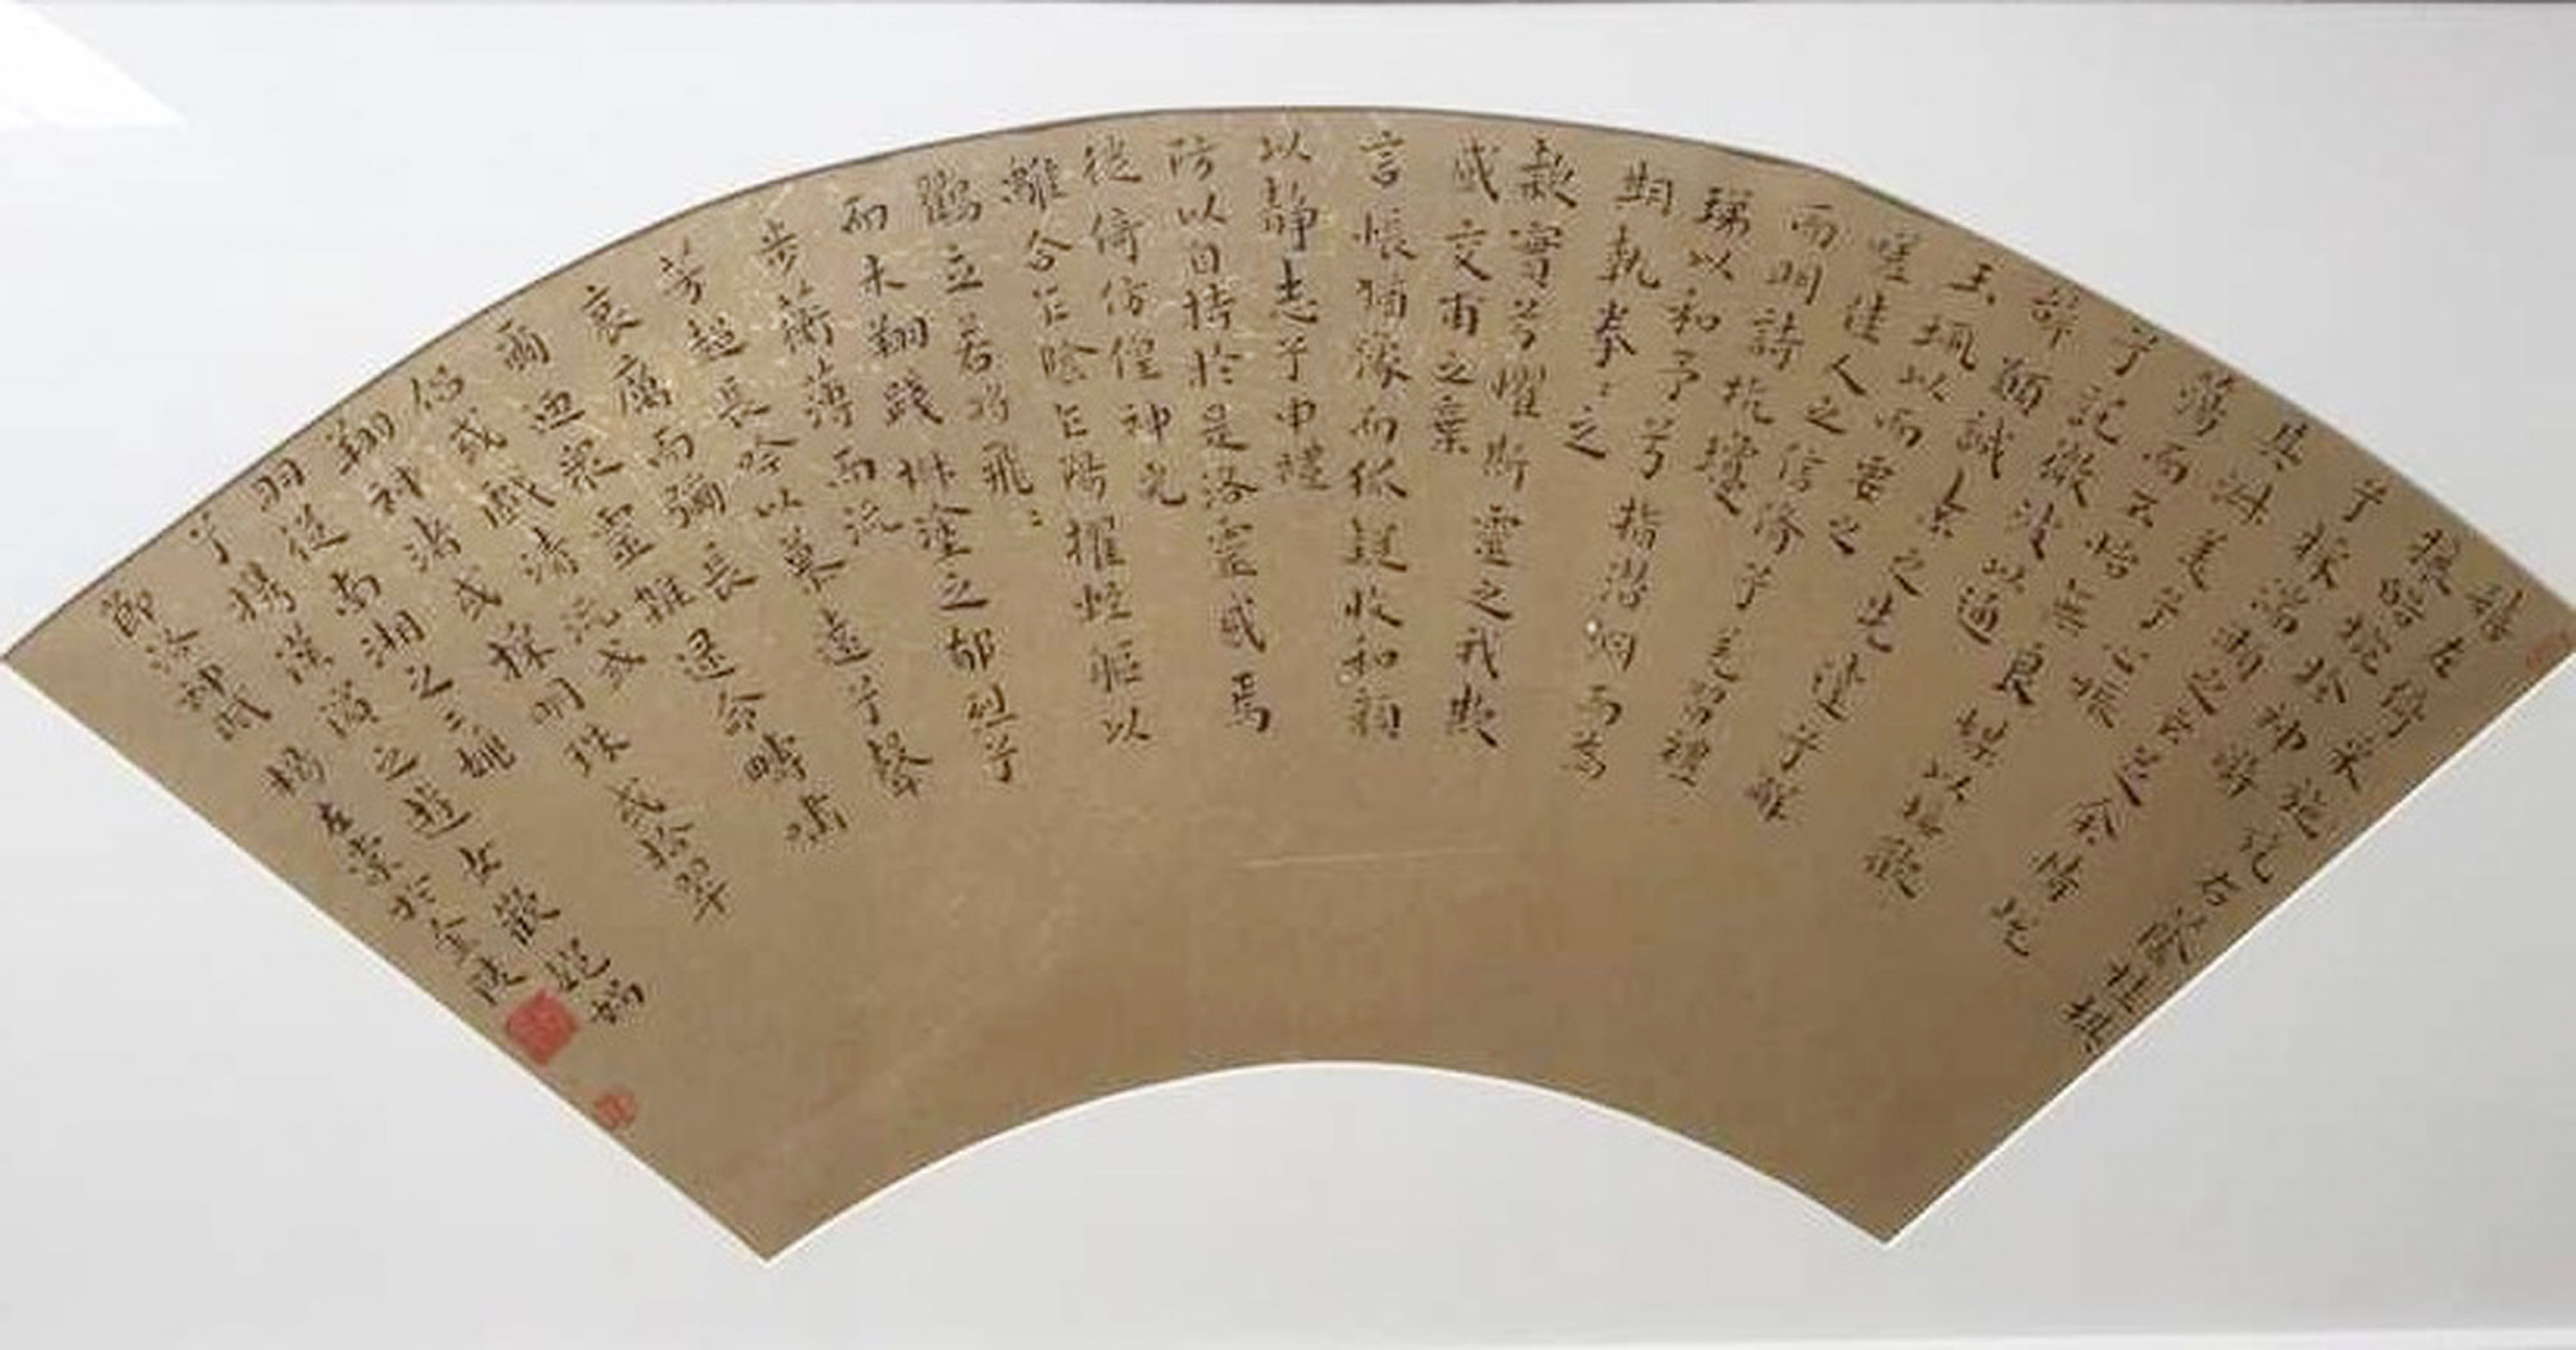 嬉左倚采旄右蔭桂旗
攘皓腕於神滸
兮採湍瀨之玄芝余情悅
其淑美兮心振
蕩而不怡無良媒以接歡
兮託微波以通
辭願誠素之先達兮解
玉珮以要之
嗟佳人之信脩兮羌習禮
而明詩抗瓊
珶以和予兮指潛淵而為
期執眷〻之
款實兮懼斯靈之我欺
感交甫之棄
言悵猶豫而狐疑收和顏
以靜志兮申禮
防以自持於是洛靈感焉
徙倚彷徨神光
離合乍陰乍陽擢輕軀以
鶴立若將飛〻
而未翔踐椒塗之郁烈兮
步蘅薄而流
芳超長吟以慕遠兮聲
哀厲而彌長
爾迺眾靈雜遝命疇嘯
侶或戲清流或
翔神渚或採明珠或拾翠
羽從南湘之二姚
兮攜漢濱之游女歎匏
節洛神賦